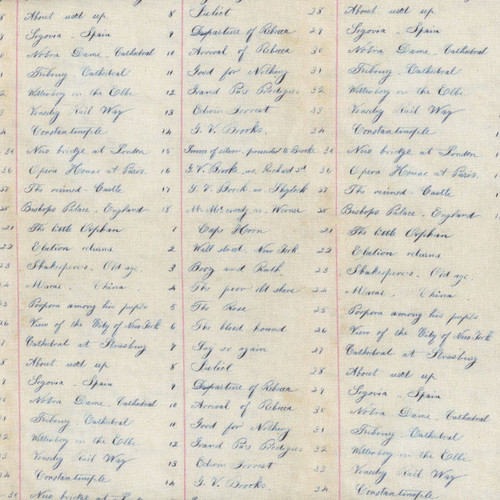 About used up 8
Segovia - Spain 9
Notra Dame - Cathedral 10
Fribourg Cathedral 11
Wittenberg on the Elbe 12
Vesedry Rail Way 13
Constantinople 14
New bridge at London 15
Opera House at Paris 16
The ruined Castle 17
Bishops Palace - England 18
The little Orphan 1
Election returns 2
Shakesperes - Old age 3
Macao - China 4
Porpora among his pupils 5
View of the City of New York 6
Cathedral at Strasburg 7
About used up 8
Segovia - Spain 9
Notra Dame - Cathedral 10
Fribourg Cathedral 11
Wittenberg on the Elbe 12
Vesedry Rail Way 13
Constantinople 14
New bridge at London
Juliet 28
Departure of Rebecca 29
Arrival of Rebecca 30
Good for Nothing 31
Grand Pas Prodigus 32
Edwin Forrest 33
G. V. Brooks 34
presented to Brooks 35
G. V. Brooks as Richard 3d 36
G. V. Brook as Shylock 37
Mr. McCready as Werner 38
Cape Horn 21
Wall street New York 22
Boaz and Ruth 23
The poor old slave 24
The Rose 25
The blood hound 26
Say so again 27
Juliet 28
Departure of Rebecca 29
Arrival of Rebecca 30
Good for Nothing 31
Grand Pas Prodigus 32
Edwin Forrest 33
G. V. Brooks 34
About used up
Segovia - Spain
Notra Dame - Cathedral
Fribourg Cathedral
Wittenberg on the Elbe
Vesedry Rail Way
Constantinople
New bridge at London
Opera House at Paris
The ruined Castle
Bishops Palace - England
The little Orphan
Election returns
Shakesperes - Old age
Macao - China
Porpora among his pupils
View of the City of New York
Cathedral at Strasburg
About used up
Segovia - Spain
Notra Dame - Cathedral
Fribourg Cathedral
Wittenberg on the Elbe
Vesedry Rail Way
Constantinople
New bridge at London